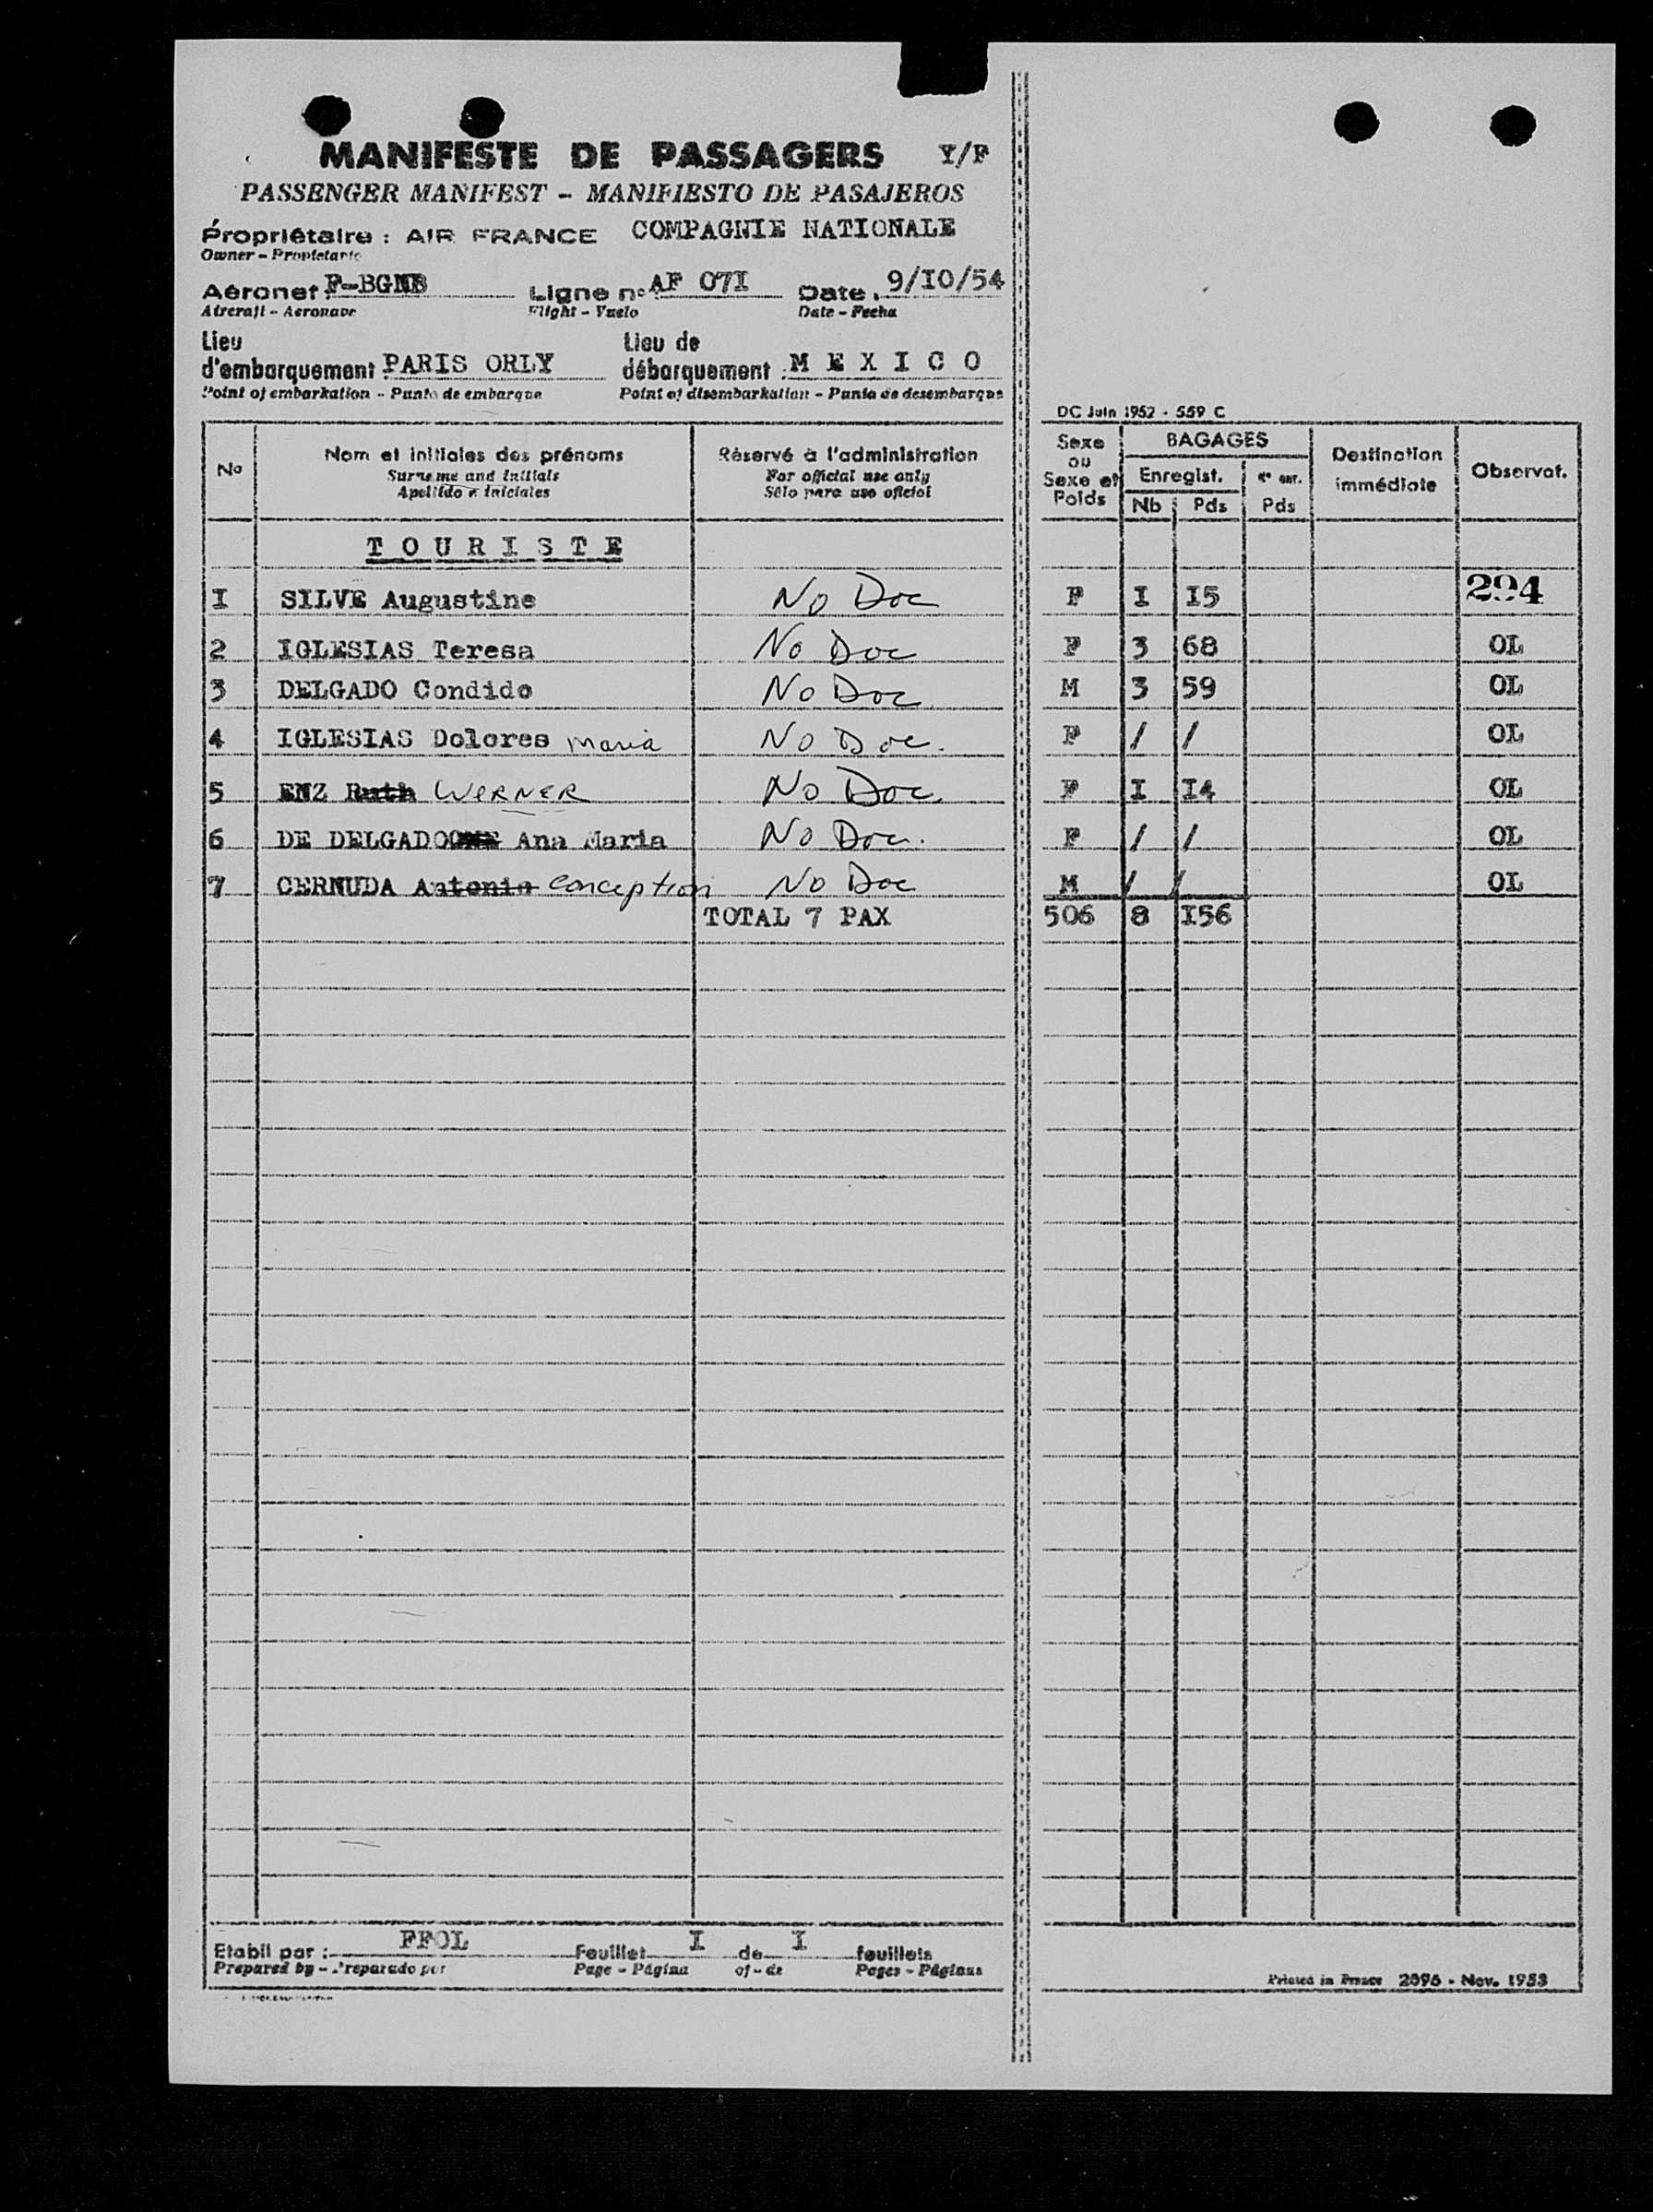 MANIFESTE DE PASSAGERS Y/F
PASSENGER MANIFEST - MANIFIESTO DE PASAJEROS
Propriétaire : AIR FRANCE COMPAGNIE NATIONALE
Owner - Propietario
Aéronef F-BGNB Ligne n° AF 07I Date 9/IO/54
Aircraft - Aeronave Flight - Vuelo Date - Fecha
Lieu d'embarquement PARIS ORLY Lieu de débarquement M E X I C O
Point of embarkation - Punto de embarque Point of disembarkation - Punto de desembarque
DC Juin 1952 - 559 C
No Nom et initiales des prénoms Réservé à l'administration Sexe ou Sexe et Poids BAGAGES Destination immédiate Observat.
Surname and initials For official use only Enregist.
Apellido e iniciales Sólo para uso oficial Nb Pds Pds
T O U R I S T E
I SILVE Augustine No Doc F I I5 294
2 IGLESIAS Teresa No Doc F 3 68 OL
3 DELGADO Condido No Doc M 3 59 OL
4 IGLESIAS Dolores Maria No Doc. F / / OL
5 ENZ Ruth WERNER No Doc. F I I4 OL
6 DE DELGADO Ana Maria No Doc. F / / OL
7 CERNUDA Antonio Conception No Doc M / / OL
TOTAL 7 PAX 506 8 I56
Etabli par : FFOL Feuillet I de I feuillets
Prepared by - Preparado por Page - Página of - de Pages - Páginas
Printed in France 2096 - Nov. 1953